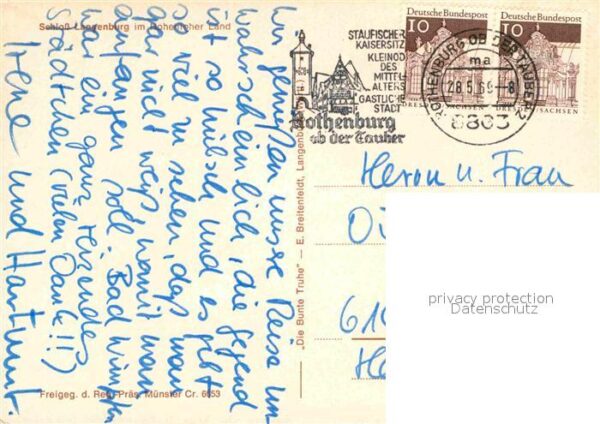 Schloß Langenburg im Hohenloher Land
Wir genießen unsere Reise un-
wahrscheinlich, die Gegend
ist so hübsch und es gibt
so viel zu sehen, daß man
gar nicht weiß womit man
anfangen soll. Bad Wimpfen
war ein ganz reizendes
Städtchen (vielen Dank!!)
Irene und Hartmut.
Freigeg. d. Reg. Präs. Münster Cr. 6653
„Die Bunte Truhe" — E. Breitenfeldt, Langenburg
STAUFISCHER
KAISERSITZ
KLEINOD
DES
MITTEL-
ALTERS
GASTLICHE
STADT
Rothenburg
ob der Tauber
ROTHENBURG OB DER TAUBER 2
ma
28.5.69-8
8803
Deutsche Bundespost
10
DRESDEN SACHSEN
Deutsche Bundespost
10
SACHSEN
Herrn u. Frau
61
privacy protection
Datenschutz